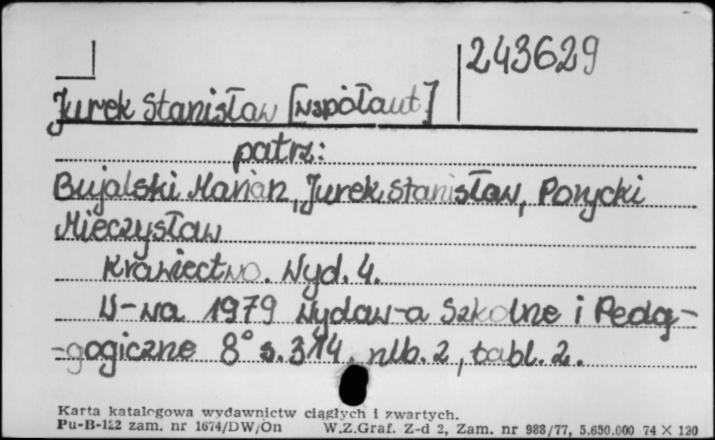 243629
Jurek Stanisław [współaut]
patrz:
Bujalski Marian, Jurek Stanisław, Porycki
Mieczysław
Krawiectwo. Wyd. 4.
W-wa 1979 Wydaw-a Szkolne i Peda-
-gogiczne 8° s. 314, nlb. 2, tabl. 2.
Karta katalogowa wydawnictw ciągłych i zwartych.
Pu-B-122 zam. nr 1674/DW/On W.Z.Graf. Z-d 2, Zam. nr 988/77, 5.650.000 74 X 120